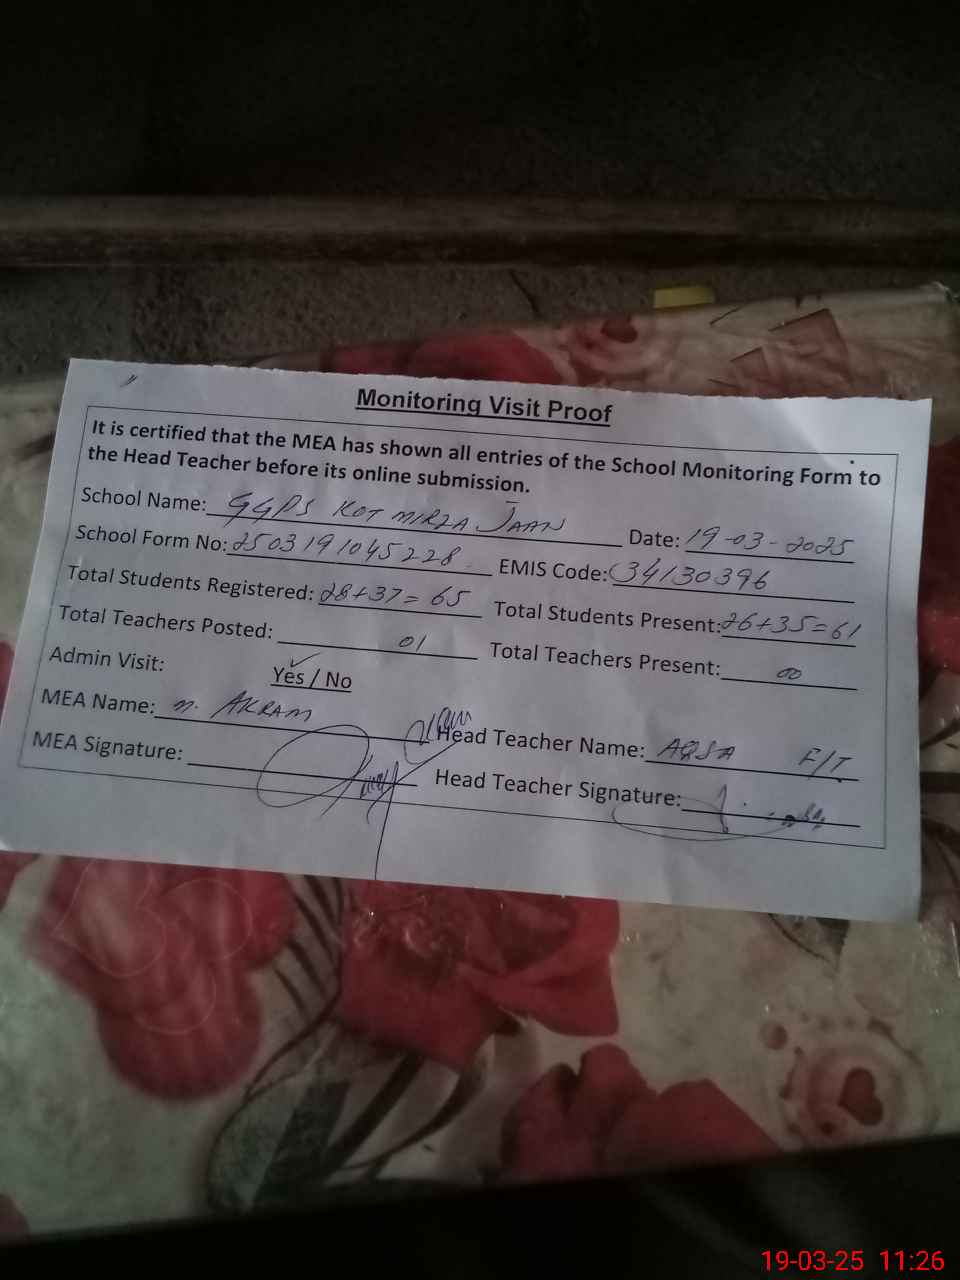 Monitoring Visit Proof
It is certified that the MEA has shown all entries of the School Monitoring Form to
the Head Teacher before its online submission.
School Name: GGPS KOT MIRZA JAAN Date: 19-03-2025
School Form No: 2503191045228 EMIS Code: 34130396
Total Students Registered: 28+37=65 Total Students Present: 26+35=61
Total Teachers Posted: 01 Total Teachers Present: 00
Admin Visit: Yes / No
MEA Name: M. AKRAM Head Teacher Name: AQSA F/T
MEA Signature: Head Teacher Signature:
19-03-25 11:26